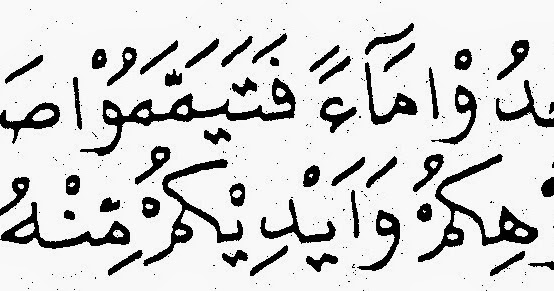 دُوْا مَآءً فَتَيَمَّمُوْا صَ
هِكُمْ وَاَيْدِيْكُمْ مِّنْهُ